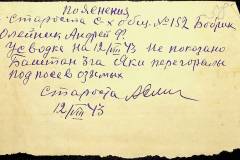 Пояснения
Староста С-х общ. №152 Бобрик
Олейник Андрей Ф.
У сводка на 12/VIII 43 не показано
Баштан 3 га Яки перегорали
под посев озимых
Староста
12/VIII 43